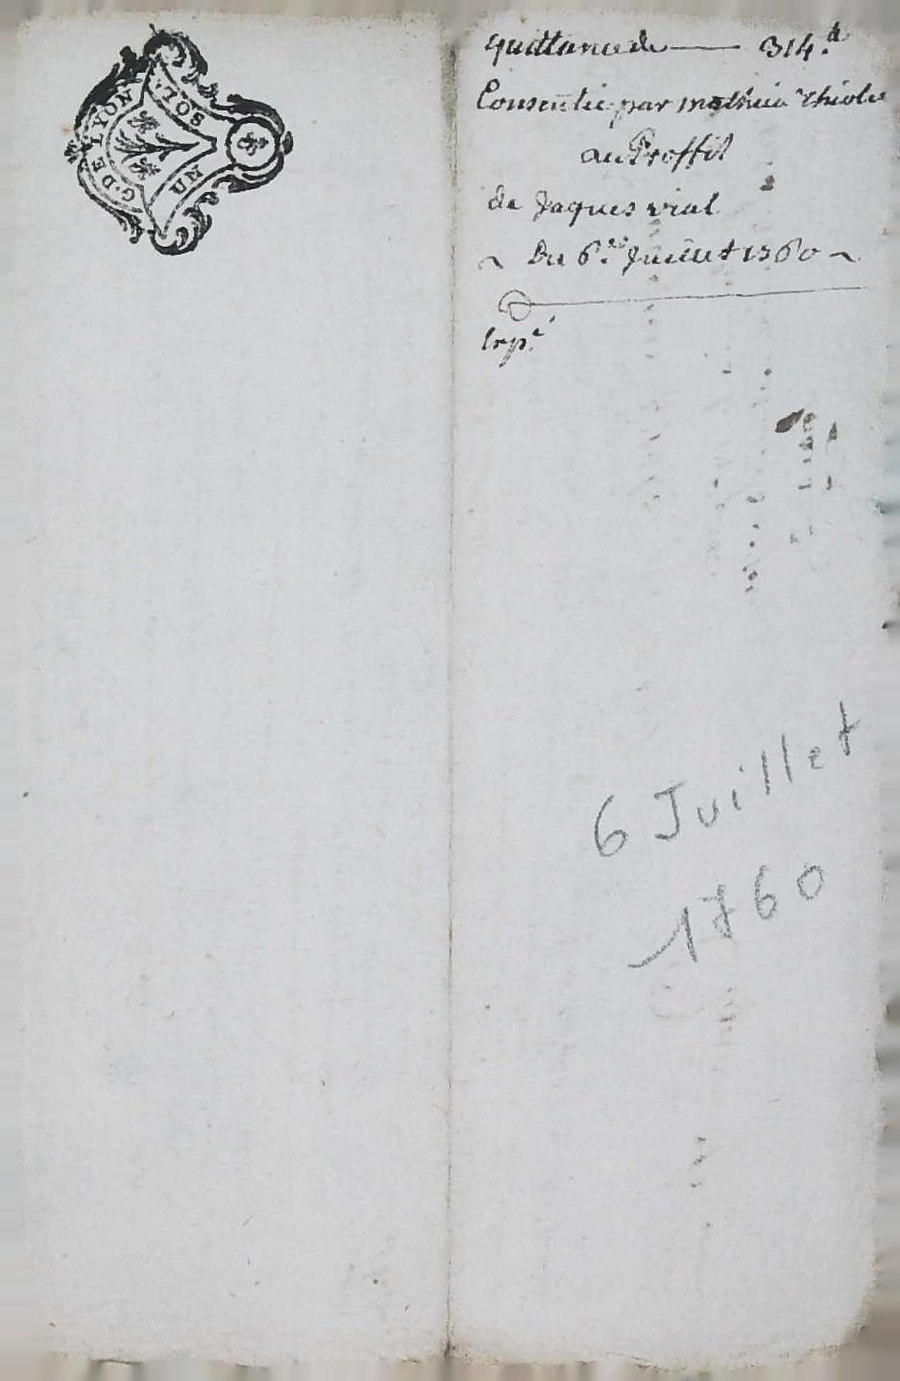 G. DE LYON
UN SOL
quittance de — 314.#
Consentie par mathieu thiolie
au Proffit
de Jaques vial
~ Du 6.es Juillet 1760 ~
Exp.e
6 Juillet
1760